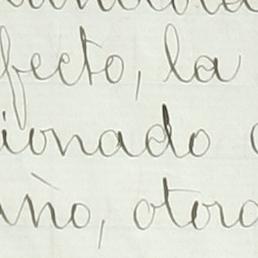 fecto, la
ionado
ño, otor